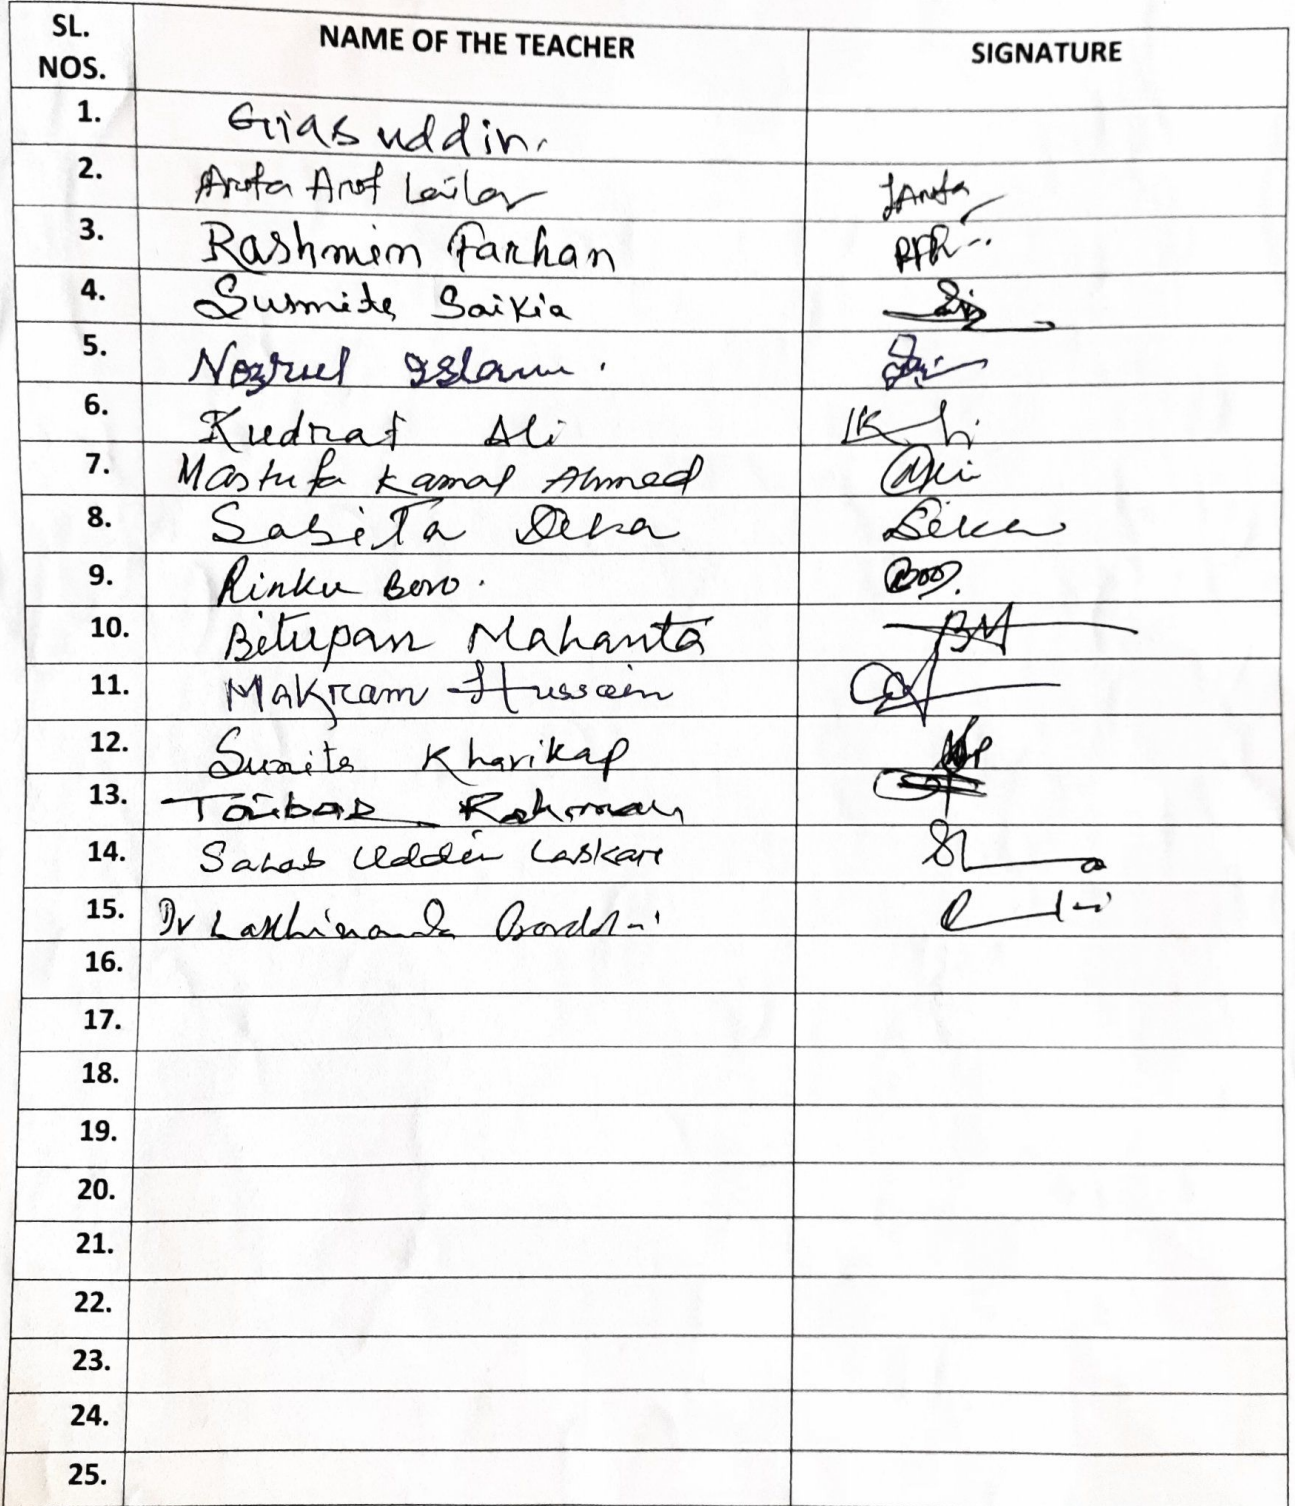 SL. NOS. NAME OF THE TEACHER SIGNATURE
1. Gias uddin.
2. Arofa Arof Laila
3. Rashmin Farhan
4. Susmita Saikia
5. Nozrul Islam.
6. Kudrat Ali
7. Mastufa Kamal Ahmed
8. Sabita Deka Deka
9. Rinku Boro.
10. Bitupan Mahanta BM
11. Makram Hussain
12. Sunita Kharikap
13. Rahman
14. Sahab Uddin Laskar
15. Dr Lakhinanda Bordoloi
16.
17.
18.
19.
20.
21.
22.
23.
24.
25.